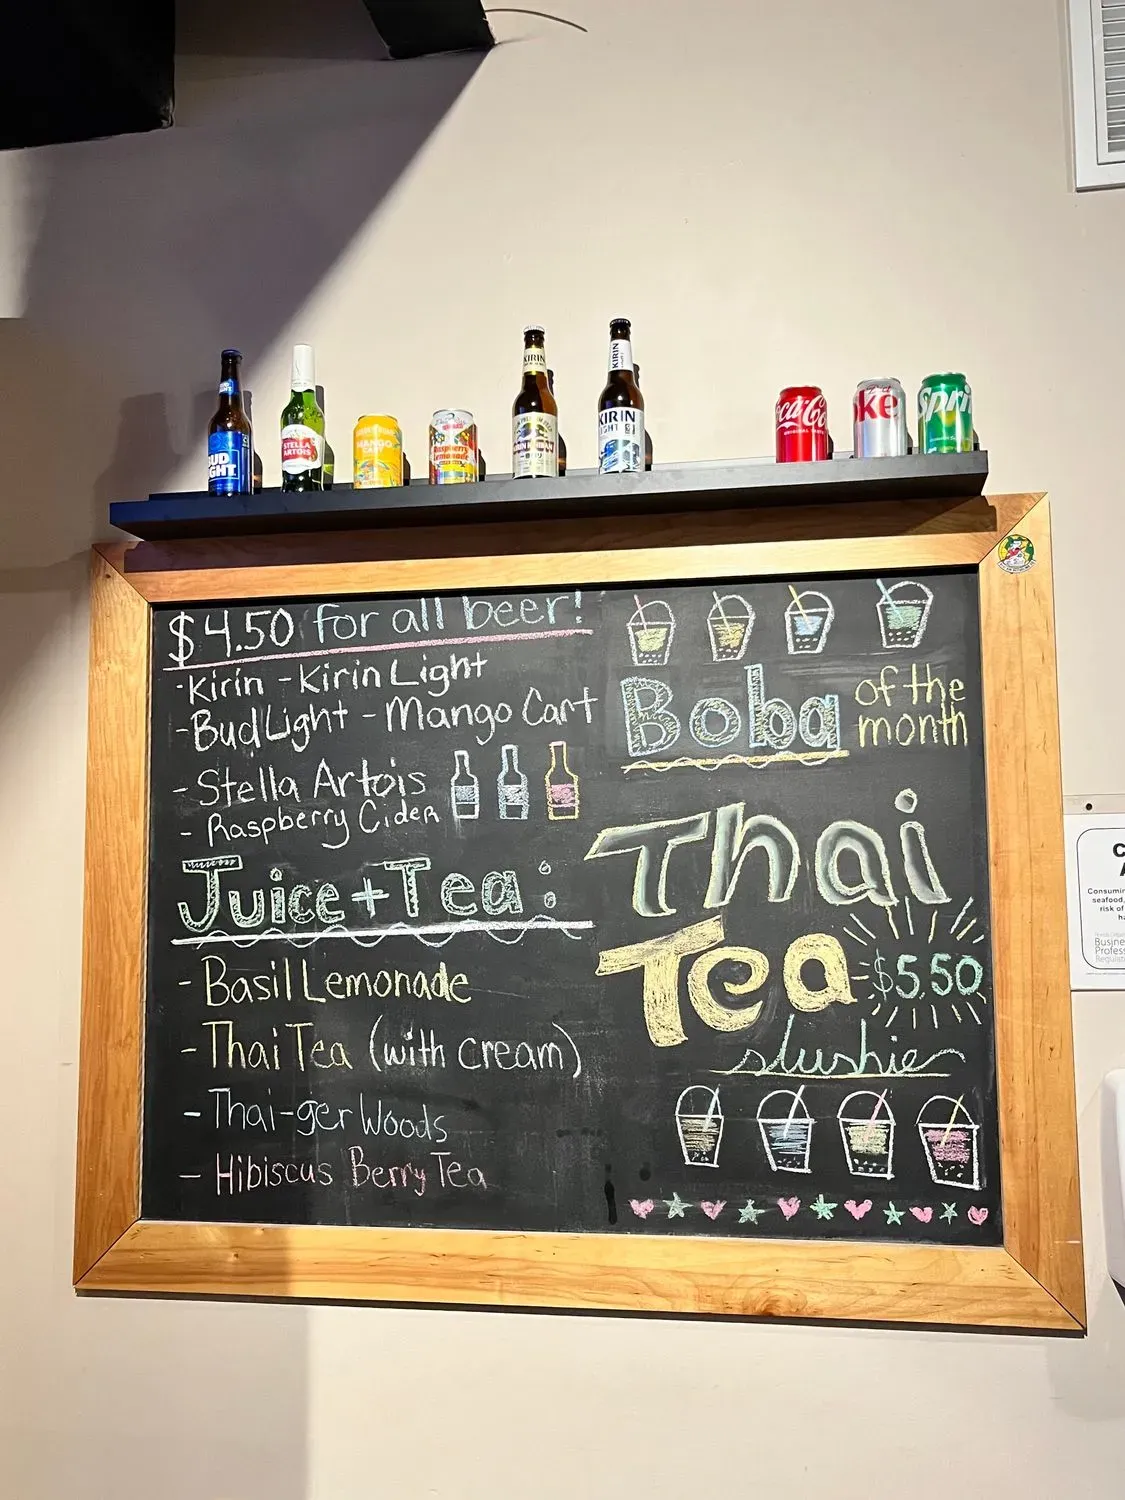 BUD
LIGHT
STELLA
ARTOIS
MANGO
CART
Raspberry
Lemonade
KIRIN
KIRIN
KIRIN
LIGHT
Coca-Cola
ORIGINAL TASTE
Diet
Coke
Sprite
$4.50 for all beer!
- Kirin - Kirin Light
- Bud Light - Mango Cart
- Stella Artois
- Raspberry Cider
Juice + Tea :
- Basil Lemonade
- Thai Tea (with cream)
- Thai-ger Woods
- Hibiscus Berry Tea
Boba of the
month
Thai
Tea - $5.50
slushie
Consuming
seafood,
risk of
Business
Profess
Regulati